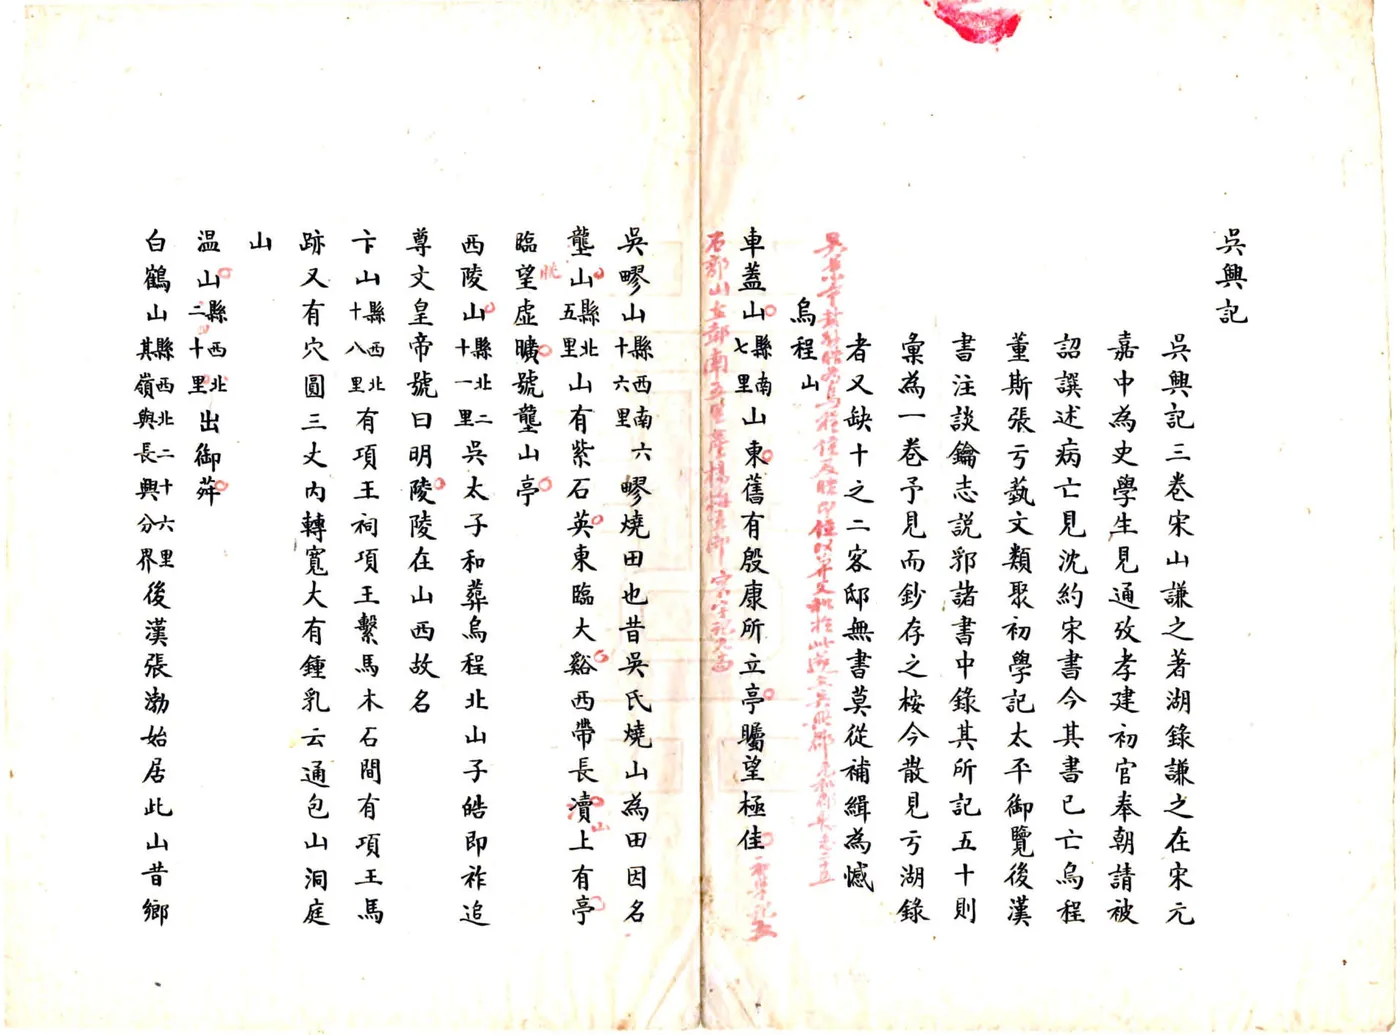 吳興記
吳興記三卷宋山謙之著湖錄謙之在宋元
嘉中為史學生見通攷孝建初官奉朝請被
詔譔述病亡見沈約宋書今其書已亡烏程
董斯張亏蓺文類聚初學記太平御覽後漢
書注談鑰志説郛諸書中錄其所記五十則
彙為一卷予見而鈔存之桉今散見亏湖錄
者又缺十之二客邸無書莫從補緝為憾
烏程山
車蓋山縣南七里山東舊有殷康所立亭矚望極佳
吳㽪山縣西南十六里六㽪燒田也昔吳氏燒山為田因名
壟山縣北五里山有紫石英東臨大谿西帶長瀆上有亭
山
臨望虛曠號壟山亭
眺
西陵山縣北二十一里吳太子和葬烏程北山子皓即祚追
尊文皇帝號曰明陵陵在山西故名
卞山縣西北十八里有項王祠項王繫馬木石間有項王馬
跡又有穴圓三丈內轉寬大有鍾乳云通包山洞庭
山
温山縣西北二十里出御荈
白鶴山縣西北二十六里其嶺與長興分界後漢張渤始居此山昔鄉